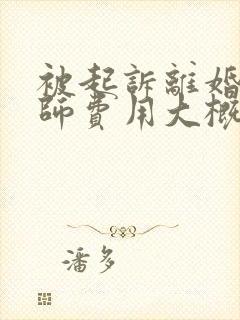 被起訴離婚
師費用大概
潘多